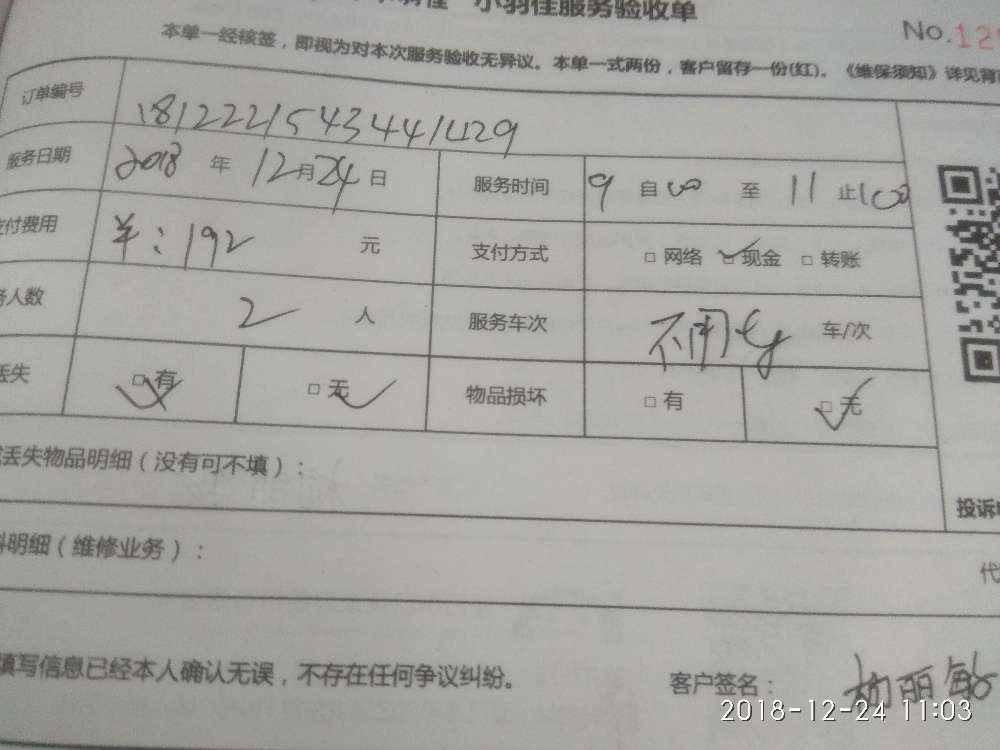 小羽佳服务验收单
No.12
本单一经核签，即视为对本次服务验收无异议。本单一式两份，客户留存一份(红)。《维保须知》详见背
订单编号 181222154344 1429
服务日期 2018 年 12 月 24 日 服务时间 9 自 00 至 11 止 00
付费用 ¥：192 元 支付方式 □ 网络 ☑ 现金 □ 转账
人数 2 人 服务车次 不用 车/次
丢失 □ 有 □ 无 物品损坏 □ 有 □ 无
丢失物品明细（没有可不填）：
投诉
明细（维修业务）：
代
填写信息已经本人确认无误，不存在任何争议纠纷。
客户签名：杨丽敏
2018-12-24 11:03